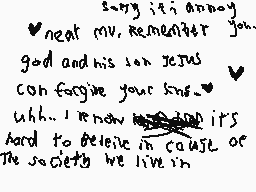 sorry if i annoy you.
♥ neat mv. Remember
god and his son jesus
can forgive your sins. ♥ ♥
uhh.. I know it's
hard to beleive in cause of
The society we live in